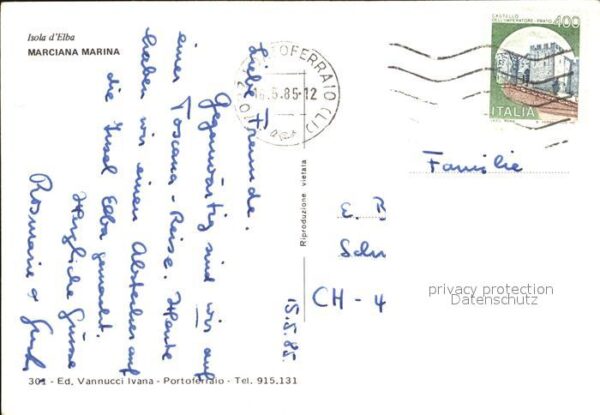 Isola d'Elba
MARCIANA MARINA
CASTELLO
DELL'IMPERATORE - PRATO
400
ITALIA
PORTOFERRAIO (LI)
16.5.85-12
Liebe Freunde.
Gegenwärtig sind wir auf
einer Toscana-Reise. Heute
haben wir einen Abstecher auf
die Insel Elba gemacht.
Herzliche Grüsse
Rosmarie &
15.5.85
Riproduzione vietata
Familie
E. B
Schn
CH - 4
privacy protection
Datenschutz
301 - Ed. Vannucci Ivana - Portoferraio - Tel. 915.131